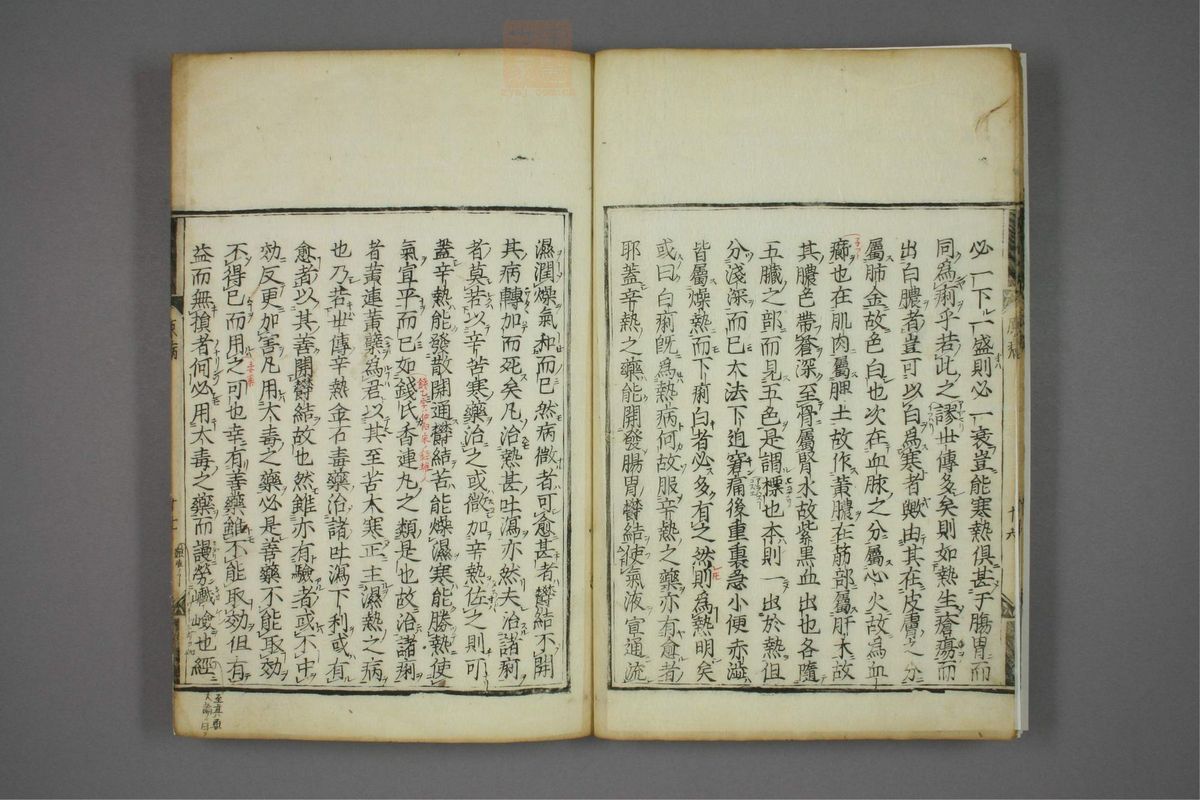 必一下一盛則必一衰豈能寒熱俱甚于腸胃而
同爲痢乎若此之謬世傳多矣則如熱生瘡瘍而
出白膿者豈可以白爲寒者歟由其在皮膚之分
屬肺金故色白也次在血脉之分屬心火故爲血
癤也在肌肉屬脾土故作黃膿在筋部屬肝木故
其膿色帶蒼深至骨屬腎水故紫黑血出也各隨
五臓之部而見五色是謂標也本則一出於熱但
分淺深而已大法下迫窘痛後重裏急小便赤澁
皆屬燥熱而下痢白者必多有之然則爲熱明矣
或曰白痢旣爲熱病何故服辛熱之藥亦有愈者
耶蓋辛熱之藥能開發腸胃欝結使氣液宣通流
濕潤燥氣和而已然病微者可愈甚者欝結不開
其病轉加而死矣凡治熱甚吐瀉亦然夫治諸痢
者莫若以辛苦寒藥治之或微加辛熱佐之則可
蓋辛熱能發散開通欝結苦能燥濕寒能勝熱使
氣宜平而已如錢氏香連丸之類是也故治諸痢
者黃連黃蘗爲君以其至苦大寒正主濕熱之病
也乃若世傳辛熱金石毒藥治諸吐瀉下利或有
愈者以其善開欝結故也然雖亦有驗者或不中
効反更加害凡用大毒之藥必是善藥不能取効
不得已而用之可也幸有善藥雖不能取効但有
益而無損者何必用大毒之藥而謾勞嶮巇也經
原病
十六